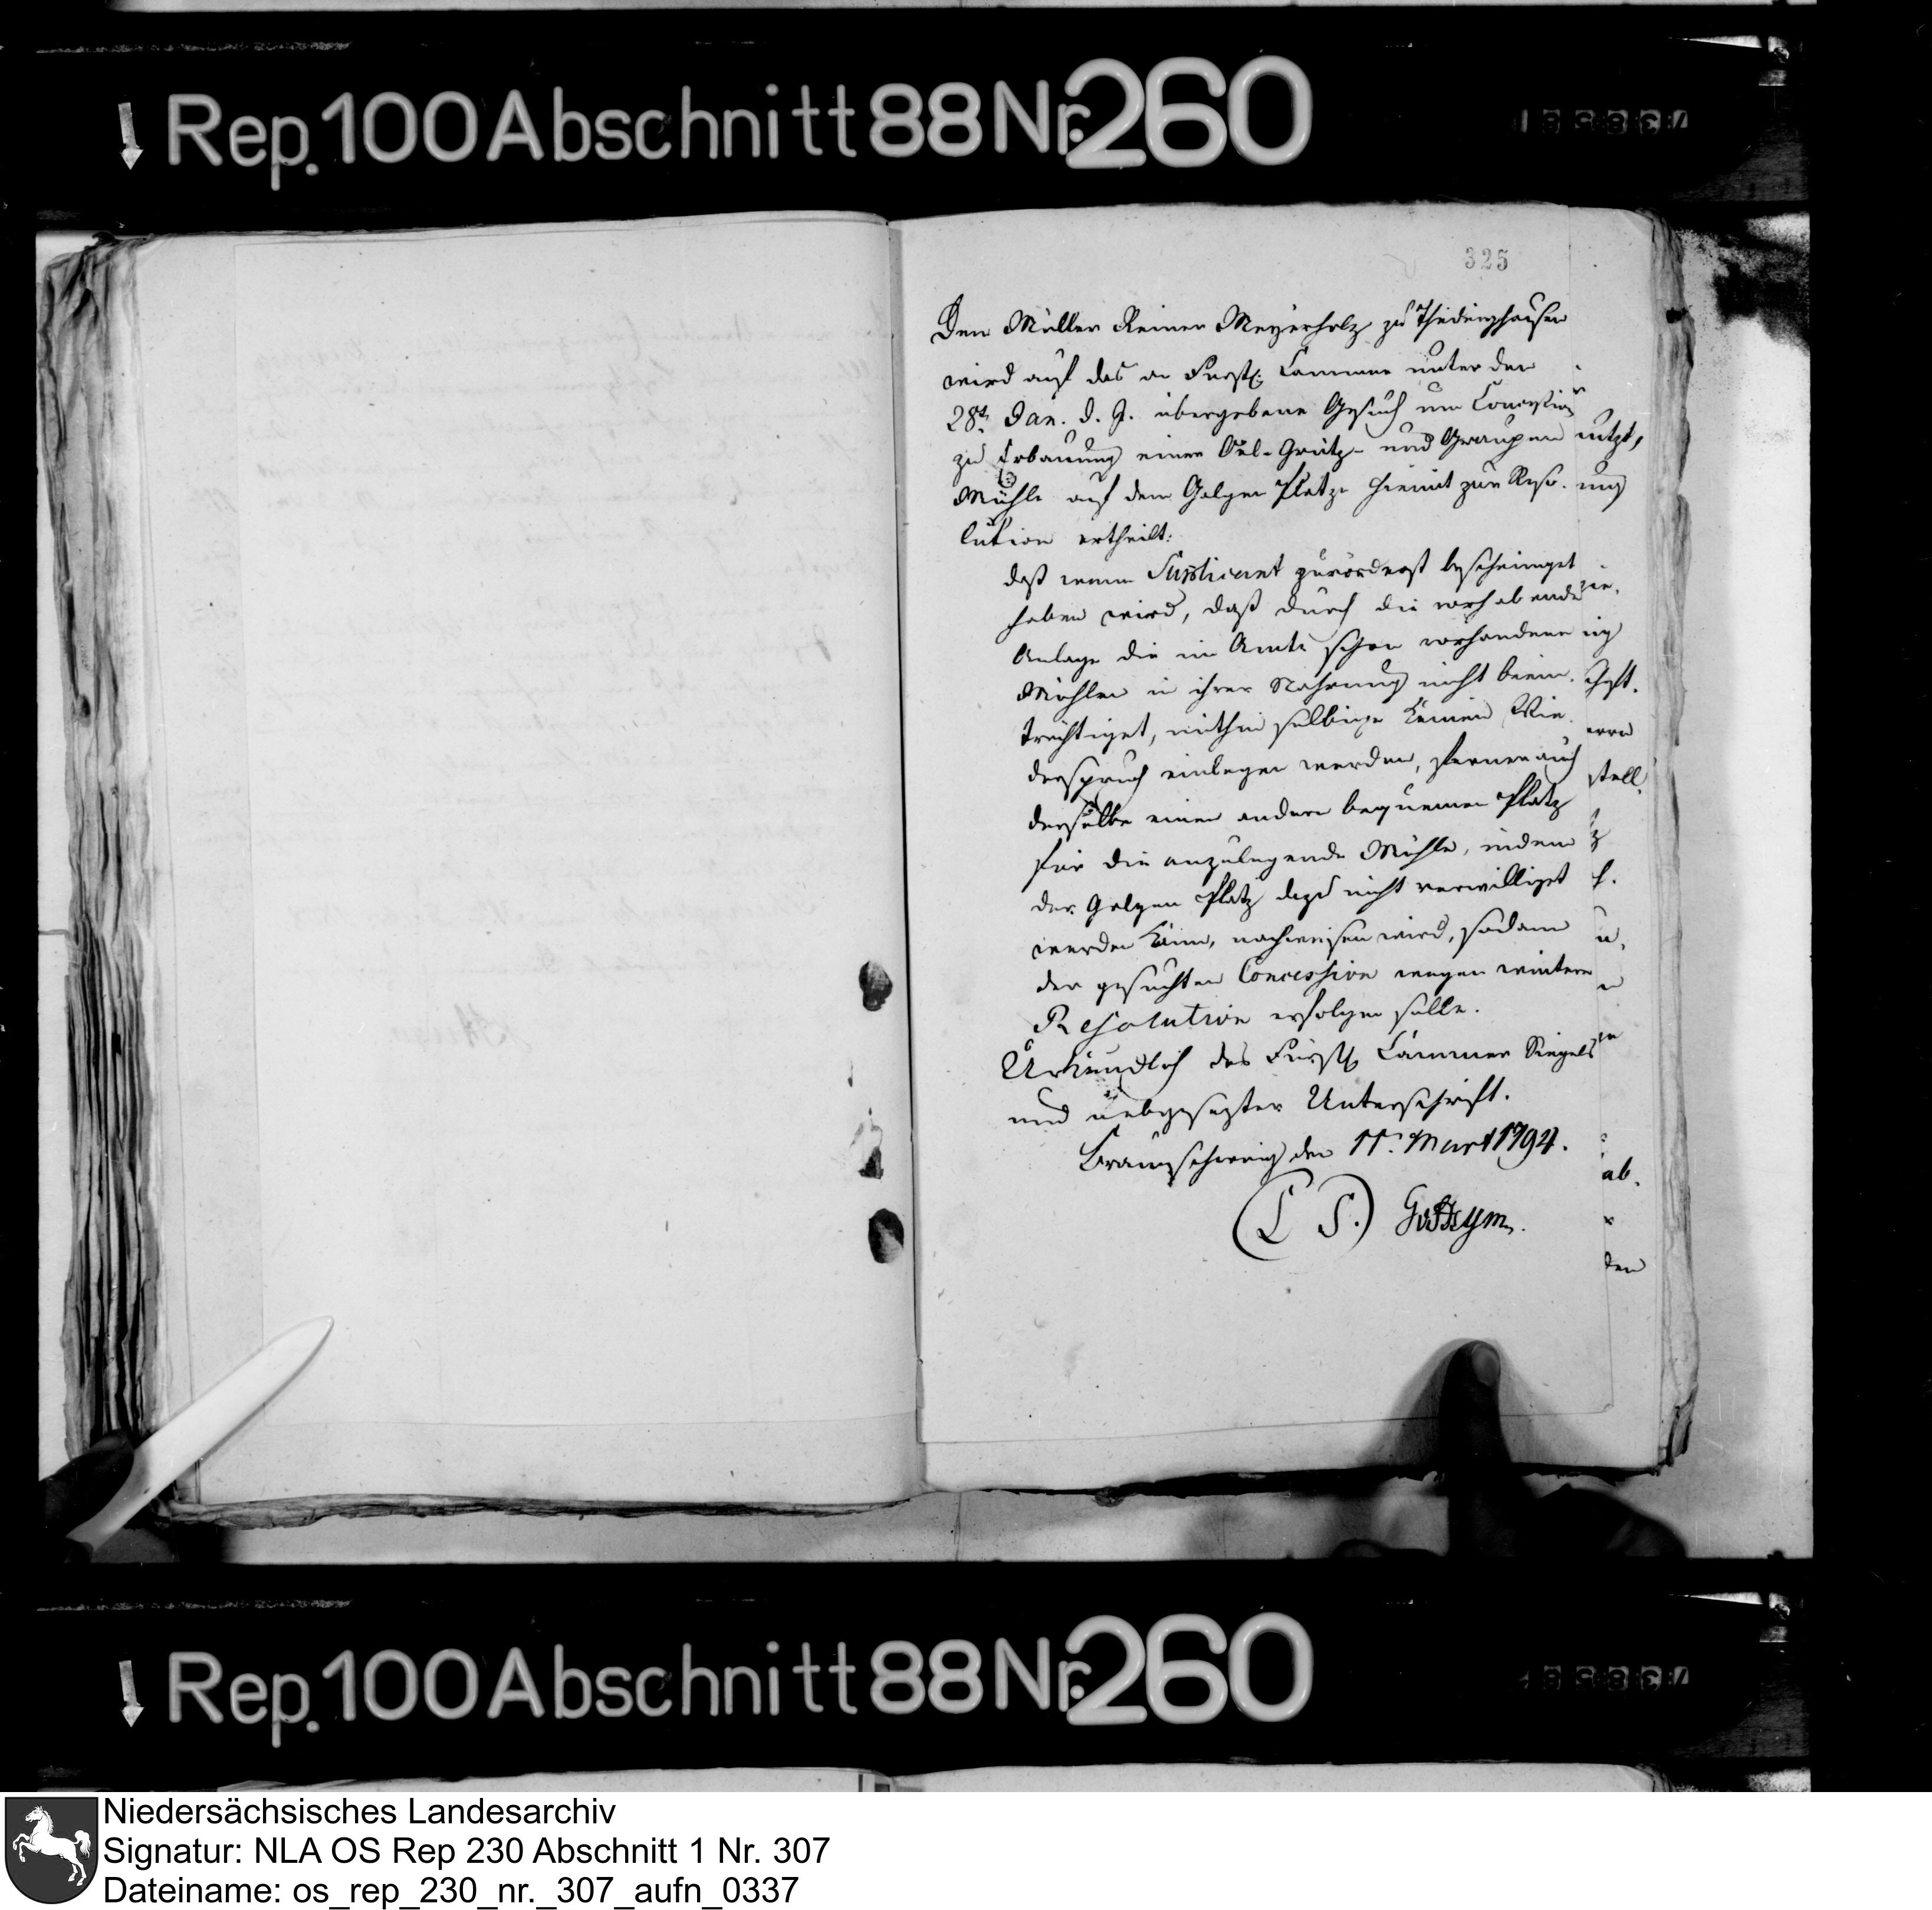 Rep. 100 Abschnitt 88 Nr. 260
325
Dem Müller Reiner Meyerholz zu Thedinghausen
wird auf das an Fürstl. Cammer unter den
28st. Jan. d. J. übergebene Gesuch um Concession
zu Erbauung einer Oel-Grütz- und Graupen
Mühle auf dem Galgen Platze hiemit zur Reso-
lution ertheilt:
daß wenn Supplicant zuvörderst bescheiniget
haben wird, daß durch die vorhabende
Anlage die im Amte schon vorhandene
Mühlen in ihrer Nahrung nicht beein-
trächtiget, mithin selbige keinen Wie-
derspruch einlegen werden, ferner auch
derselbe einen andern bequemen Platz
für die anzulegende Mühle, indem
der Galgen Platz dazu nicht verwilliget
werden kann, nachweisen wird, sodann
der gesuchten Concession wegen weitere
Resolution erfolgen solle.
Urkundlich des Fürstl. Cammer Siegels
und nebgesezter Unterschrift.
Braunschweig den 11t. Mart 1794.
(L S.)
nutzt,
ung
ig
stell
ab.
den
Rep. 100 Abschnitt 88 Nr. 260
Niedersächsisches Landesarchiv
Signatur: NLA OS Rep 230 Abschnitt 1 Nr. 307
Dateiname: os_rep_230_nr._307_aufn_0337